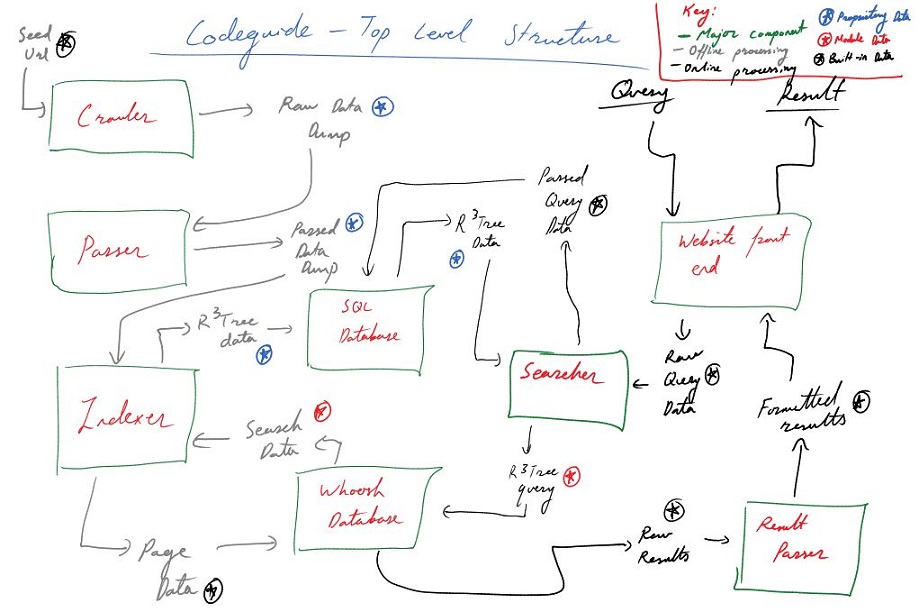 Codeguide - Top Level Structure
Key:
- Major component
- Offline processing
- Online processing
Propriotary Data
Module Data
Built-in Data
Seed
Url
Crawler
Raw Data
Dump
Query
Result
Passer
Passed
Data
Dump
R³Tree
data
SQL
Database
R³Tree
Data
Passed
Query
Data
Website front
end
Indexer
Search
Data
Searcher
Raw
Query
Data
Formatted
results
Whoosh
Database
R³Tree
query
Page
Data
Raw
Results
Result
Passer